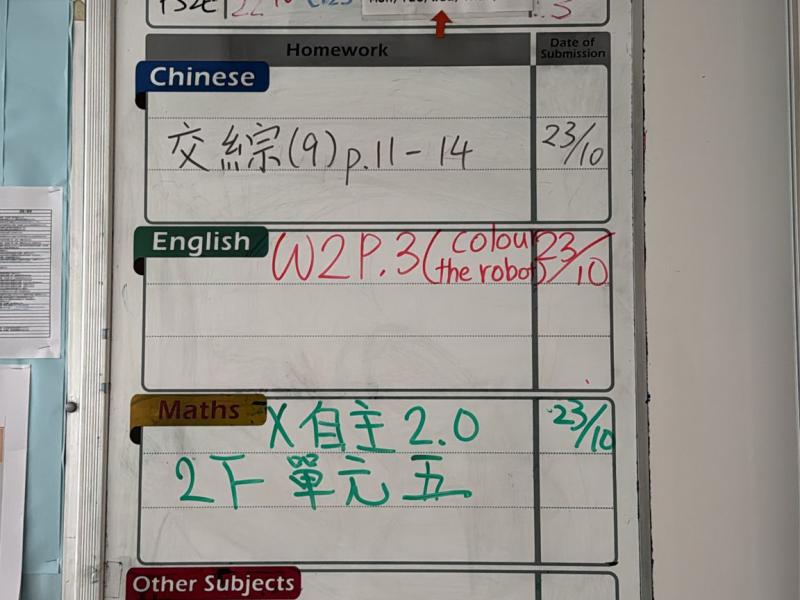 Homework
Date of
Submission
Chinese
交 綜(9)p.11-14
23/10
English
W2P.3(colour
the robot)
23/10
Maths
X自主2.0
23/10
2下 單元五
Other Subjects